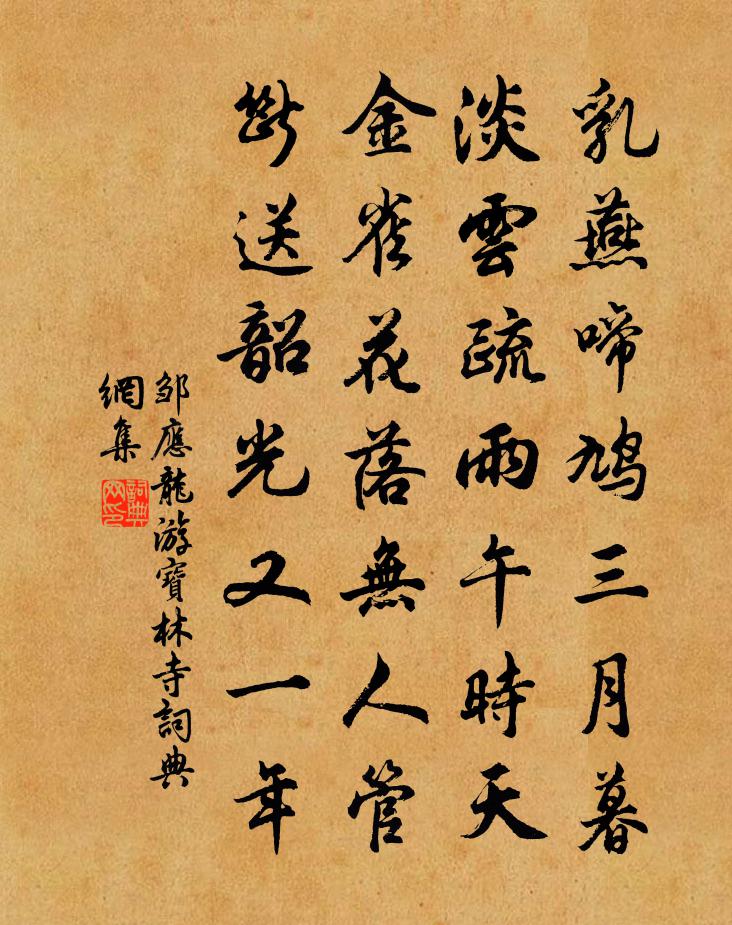 乳燕啼鳩三月暮
淡雲疏雨午時天
金雀花落無人管
斷送韶光又一年
邹應龍游寶林寺詞典
網集
詞典
网印